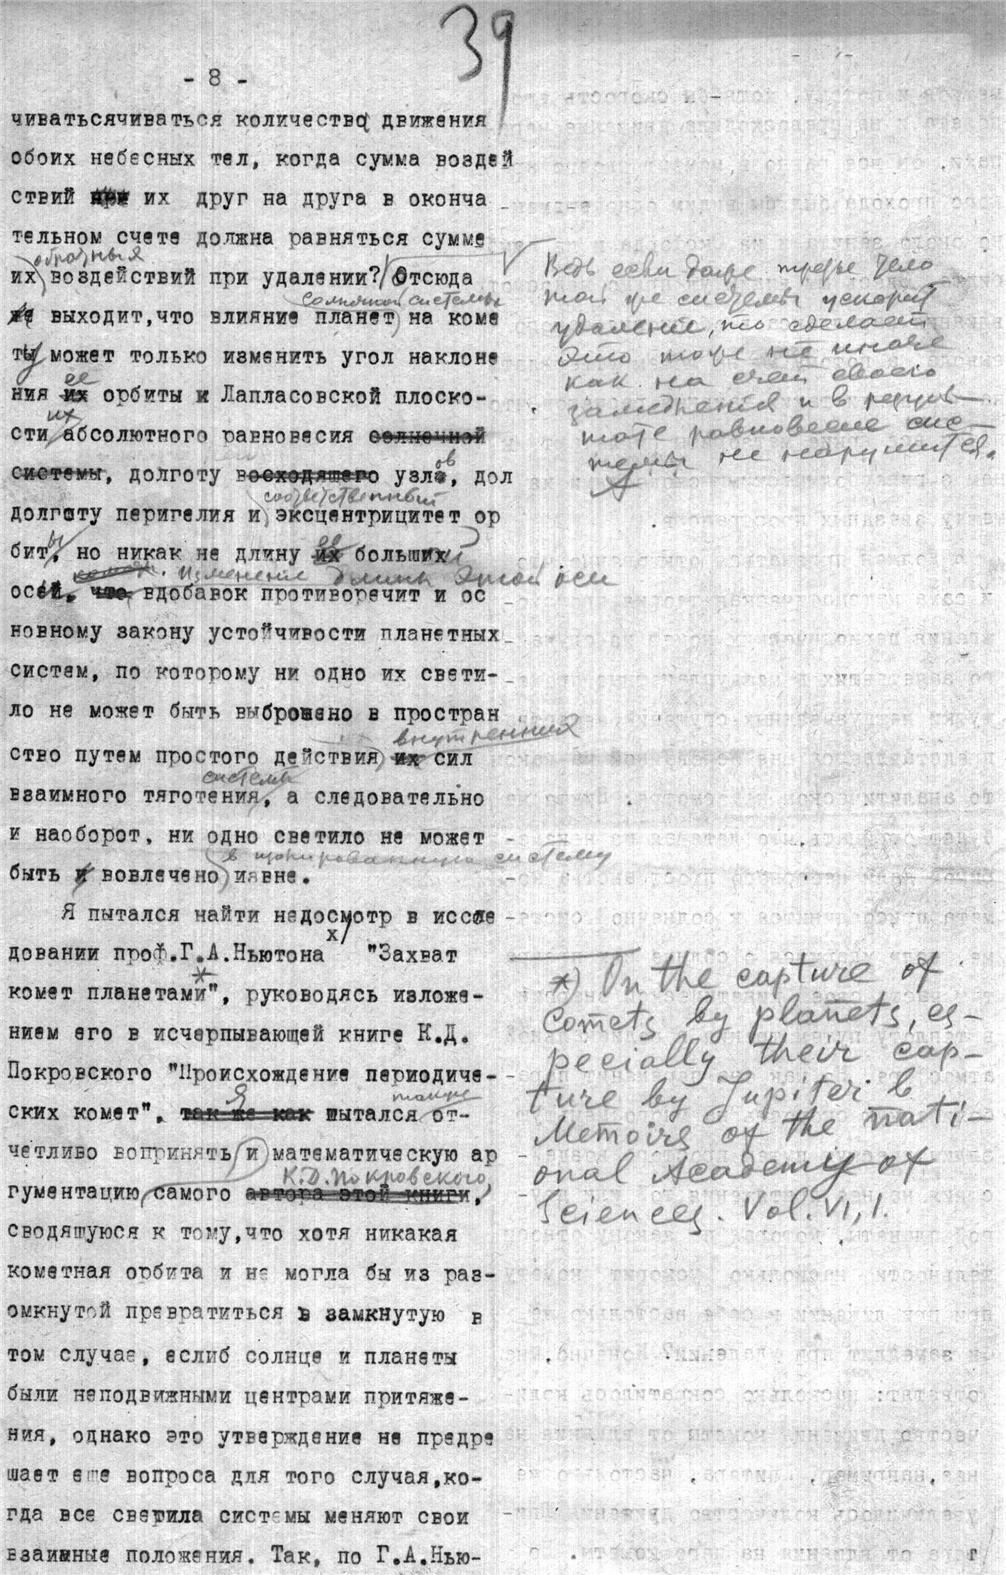 39
- 8 -
чиватьсячиваться количество движения
обоих небесных тел, когда сумма воздей
ствий при их друг на друга в оконча
тельном счете должна равняться сумме
обратных
их воздействий при удалении? Отсюда
солнечной системы
же выходит,что влияние планет на коме
ты может только изменить угол наклоне
ее
ния их орбиты к Лапласовской плоско-
их
сти абсолютного равновесия солнечной
ов
системы, долготу восходящего узла, дол
соответственный
долготу перигелия и эксцентрицитет ор
ы ее
бит, но никак не длину их больших
Изменение длины этой оси
осей, что вдобавок противоречит и ос
новному закону устойчивости планетных
систем, по которому ни одно их свети-
ло не может быть выброшено в простран
внутренних
ство путем простого действия их сил
системы
взаимного тяготения, а следовательно
и наоборот, ни одно светило не может
в систему
быть и вовлечено извне.
Я пытался найти недосмотр в иссле
х/
довании проф.Г.А.Ньютона "Захват
*
комет планетами", руководясь изложе-
нием его в исчерпывающей книге К.Д.
Покровского "Происхождение периодиче-
я также
ских комет", так же как пытался от-
четливо воспринять и математическую ар
К.Д.Покровского,
гументацию самого автора этой книги,
сводящуюся к тому,что хотя никакая
кометная орбита и не могла бы из раз-
омкнутой превратиться в замкнутую в
том случае, еслиб солнце и планеты
были неподвижными центрами притяже-
ния, однако это утверждение не предре
шает еще вопроса для того случая,ко-
гда все сверила системы меняют свои
взаимные положения. Так, по Г.А.Нью-
Ведь если даже третье тело
той же системы ускорит
удаление, то сделает
это тоже не иначе
как на счет своего
замедления и в резуль-
тате равновесие сис-
темы не нарушится.
*) On the capture of
Comets by planets, es-
pecially their cap-
ture by Jupiter в
Memoirs of the nati-
onal Academy of
Sciences. Vol. VI, 1.